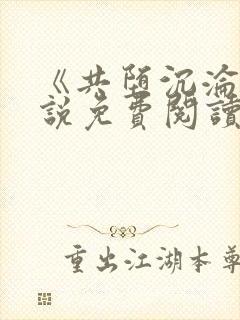 《共堕沉淪
說免費閱讀
重出江湖本尊